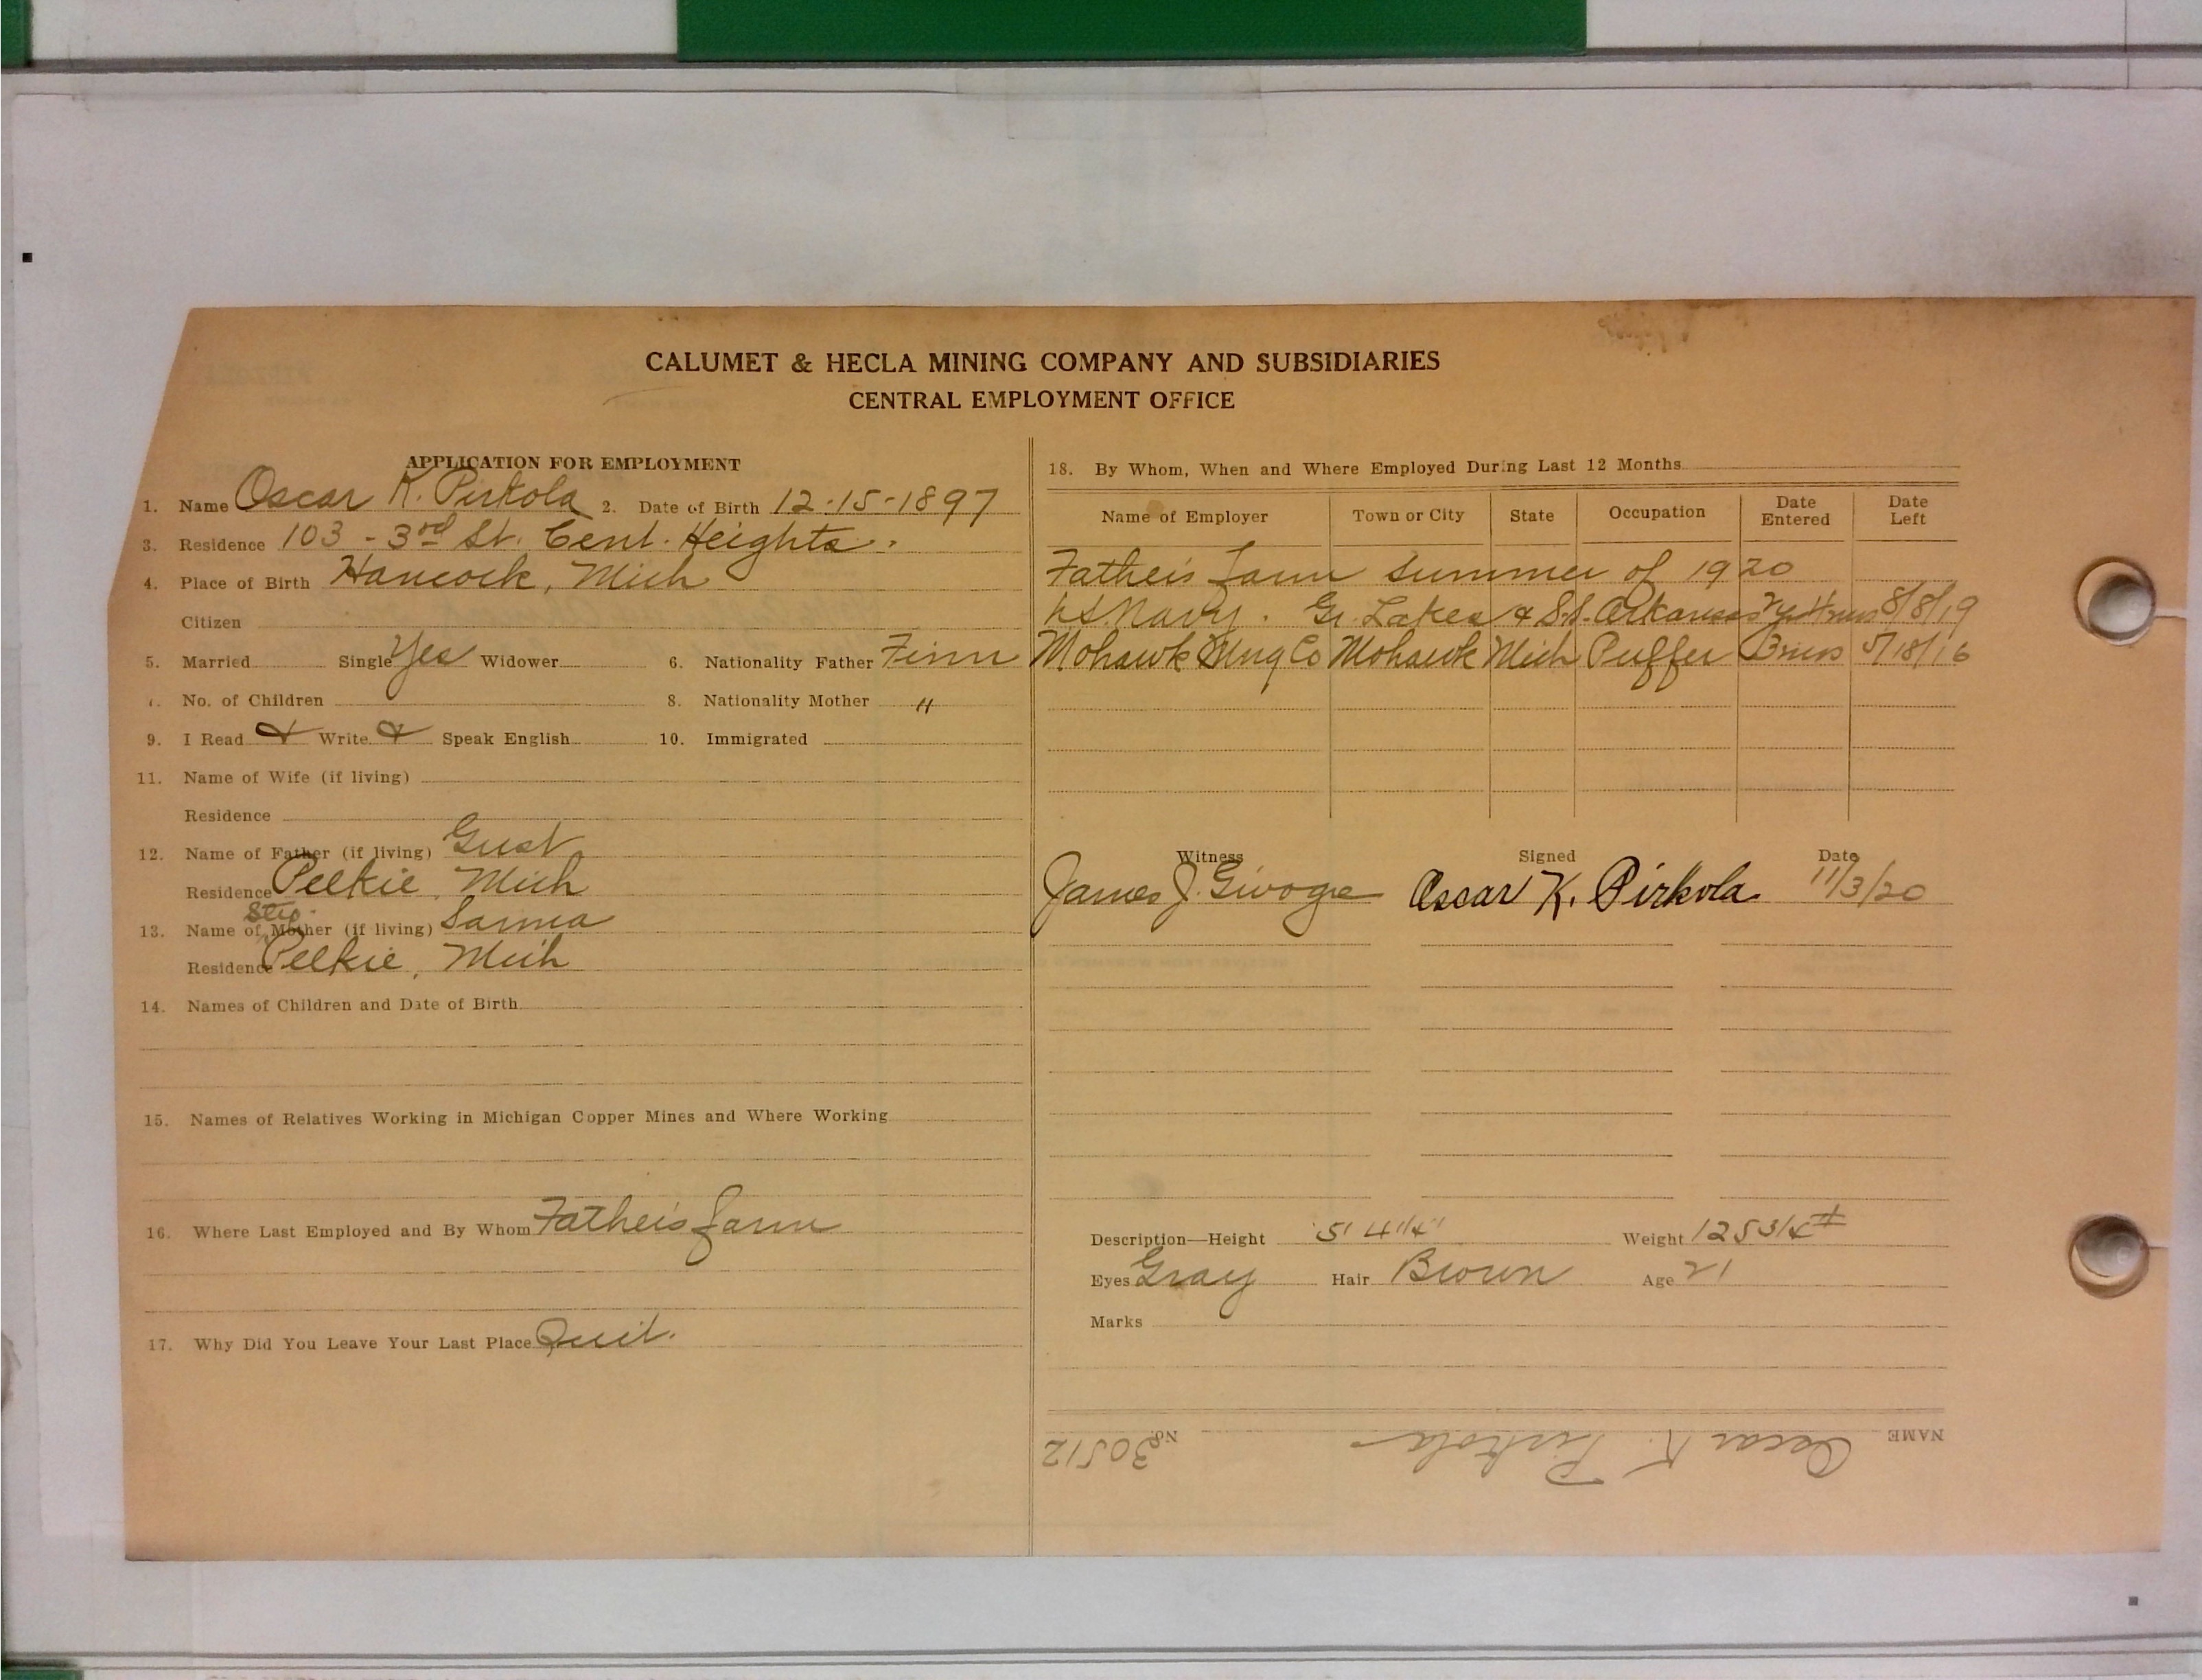 CALUMET & HECLA MINING COMPANY AND SUBSIDIARIES
CENTRAL EMPLOYMENT OFFICE
APPLICATION FOR EMPLOYMENT
1. Name Oscar K. Pirkola 2. Date of Birth 12-15-1897
3. Residence 103 - 3rd St. Cent. Heights.
4. Place of Birth Hancock, Mich
Citizen
5. Married Single Yes Widower 6. Nationality Father Finn
7. No. of Children 8. Nationality Mother "
9. I Read & Write & Speak English 10. Immigrated
11. Name of Wife (if living)
Residence
12. Name of Father (if living) Gust
Residence Pelkie, Mich
Step
13. Name of Mother (if living) Sanna
Residence Pelkie, Mich
14. Names of Children and Date of Birth
15. Names of Relatives Working in Michigan Copper Mines and Where Working
16. Where Last Employed and By Whom Father's farm
17. Why Did You Leave Your Last Place Quit.
18. By Whom, When and Where Employed During Last 12 Months
Name of Employer Town or City State Occupation Date Entered Date Left
Father's farm summer of 1920
U.S. Navy. Gr. Lakes & S.S. Arkansas 8/8/19
Mohawk Mng Co Mohawk Mich Puffer 3 mos 5/18/16
Witness Signed Date
James J. Oscar K. Pirkola 11/3/20
Description—Height 5' 4 1/4" Weight 125 3/4 #
Eyes Gray Hair Brown Age 21
Marks
NAME Oscar K. Pirkola No. 30512